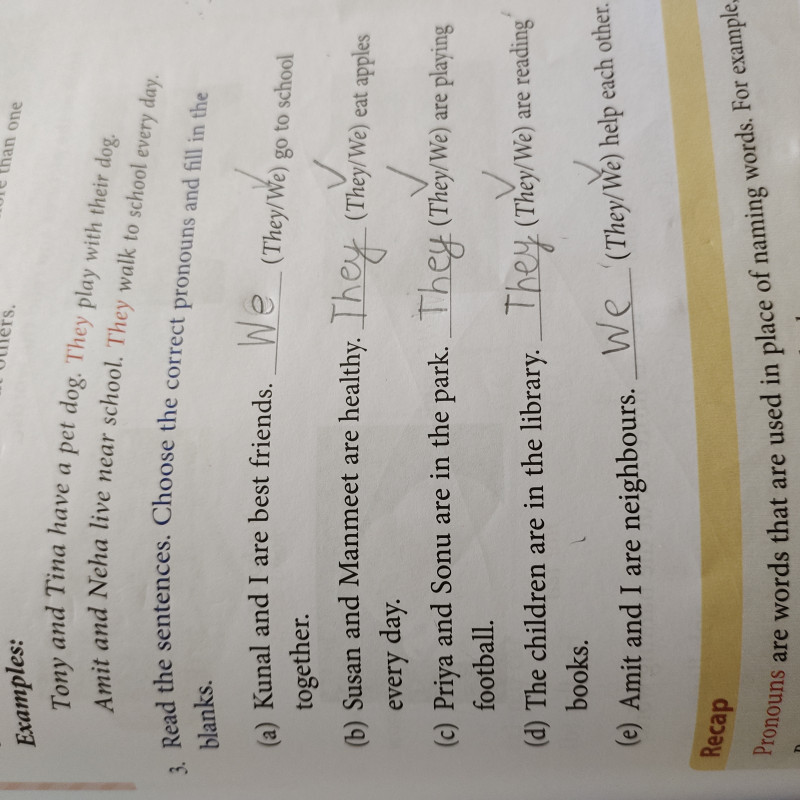 than one
Examples:
Tony and Tina have a pet dog. They play with their dog.
Amit and Neha live near school. They walk to school every day.
3. Read the sentences. Choose the correct pronouns and fill in the
blanks.
(a) Kunal and I are best friends. We (They/We) go to school
together.
(b) Susan and Manmeet are healthy. They (They/We) eat apples
every day.
(c) Priya and Sonu are in the park. They (They/We) are playing
football.
(d) The children are in the library. They (They/We) are reading
books.
(e) Amit and I are neighbours. We (They/We) help each other.
Recap
Pronouns are words that are used in place of naming words. For example,